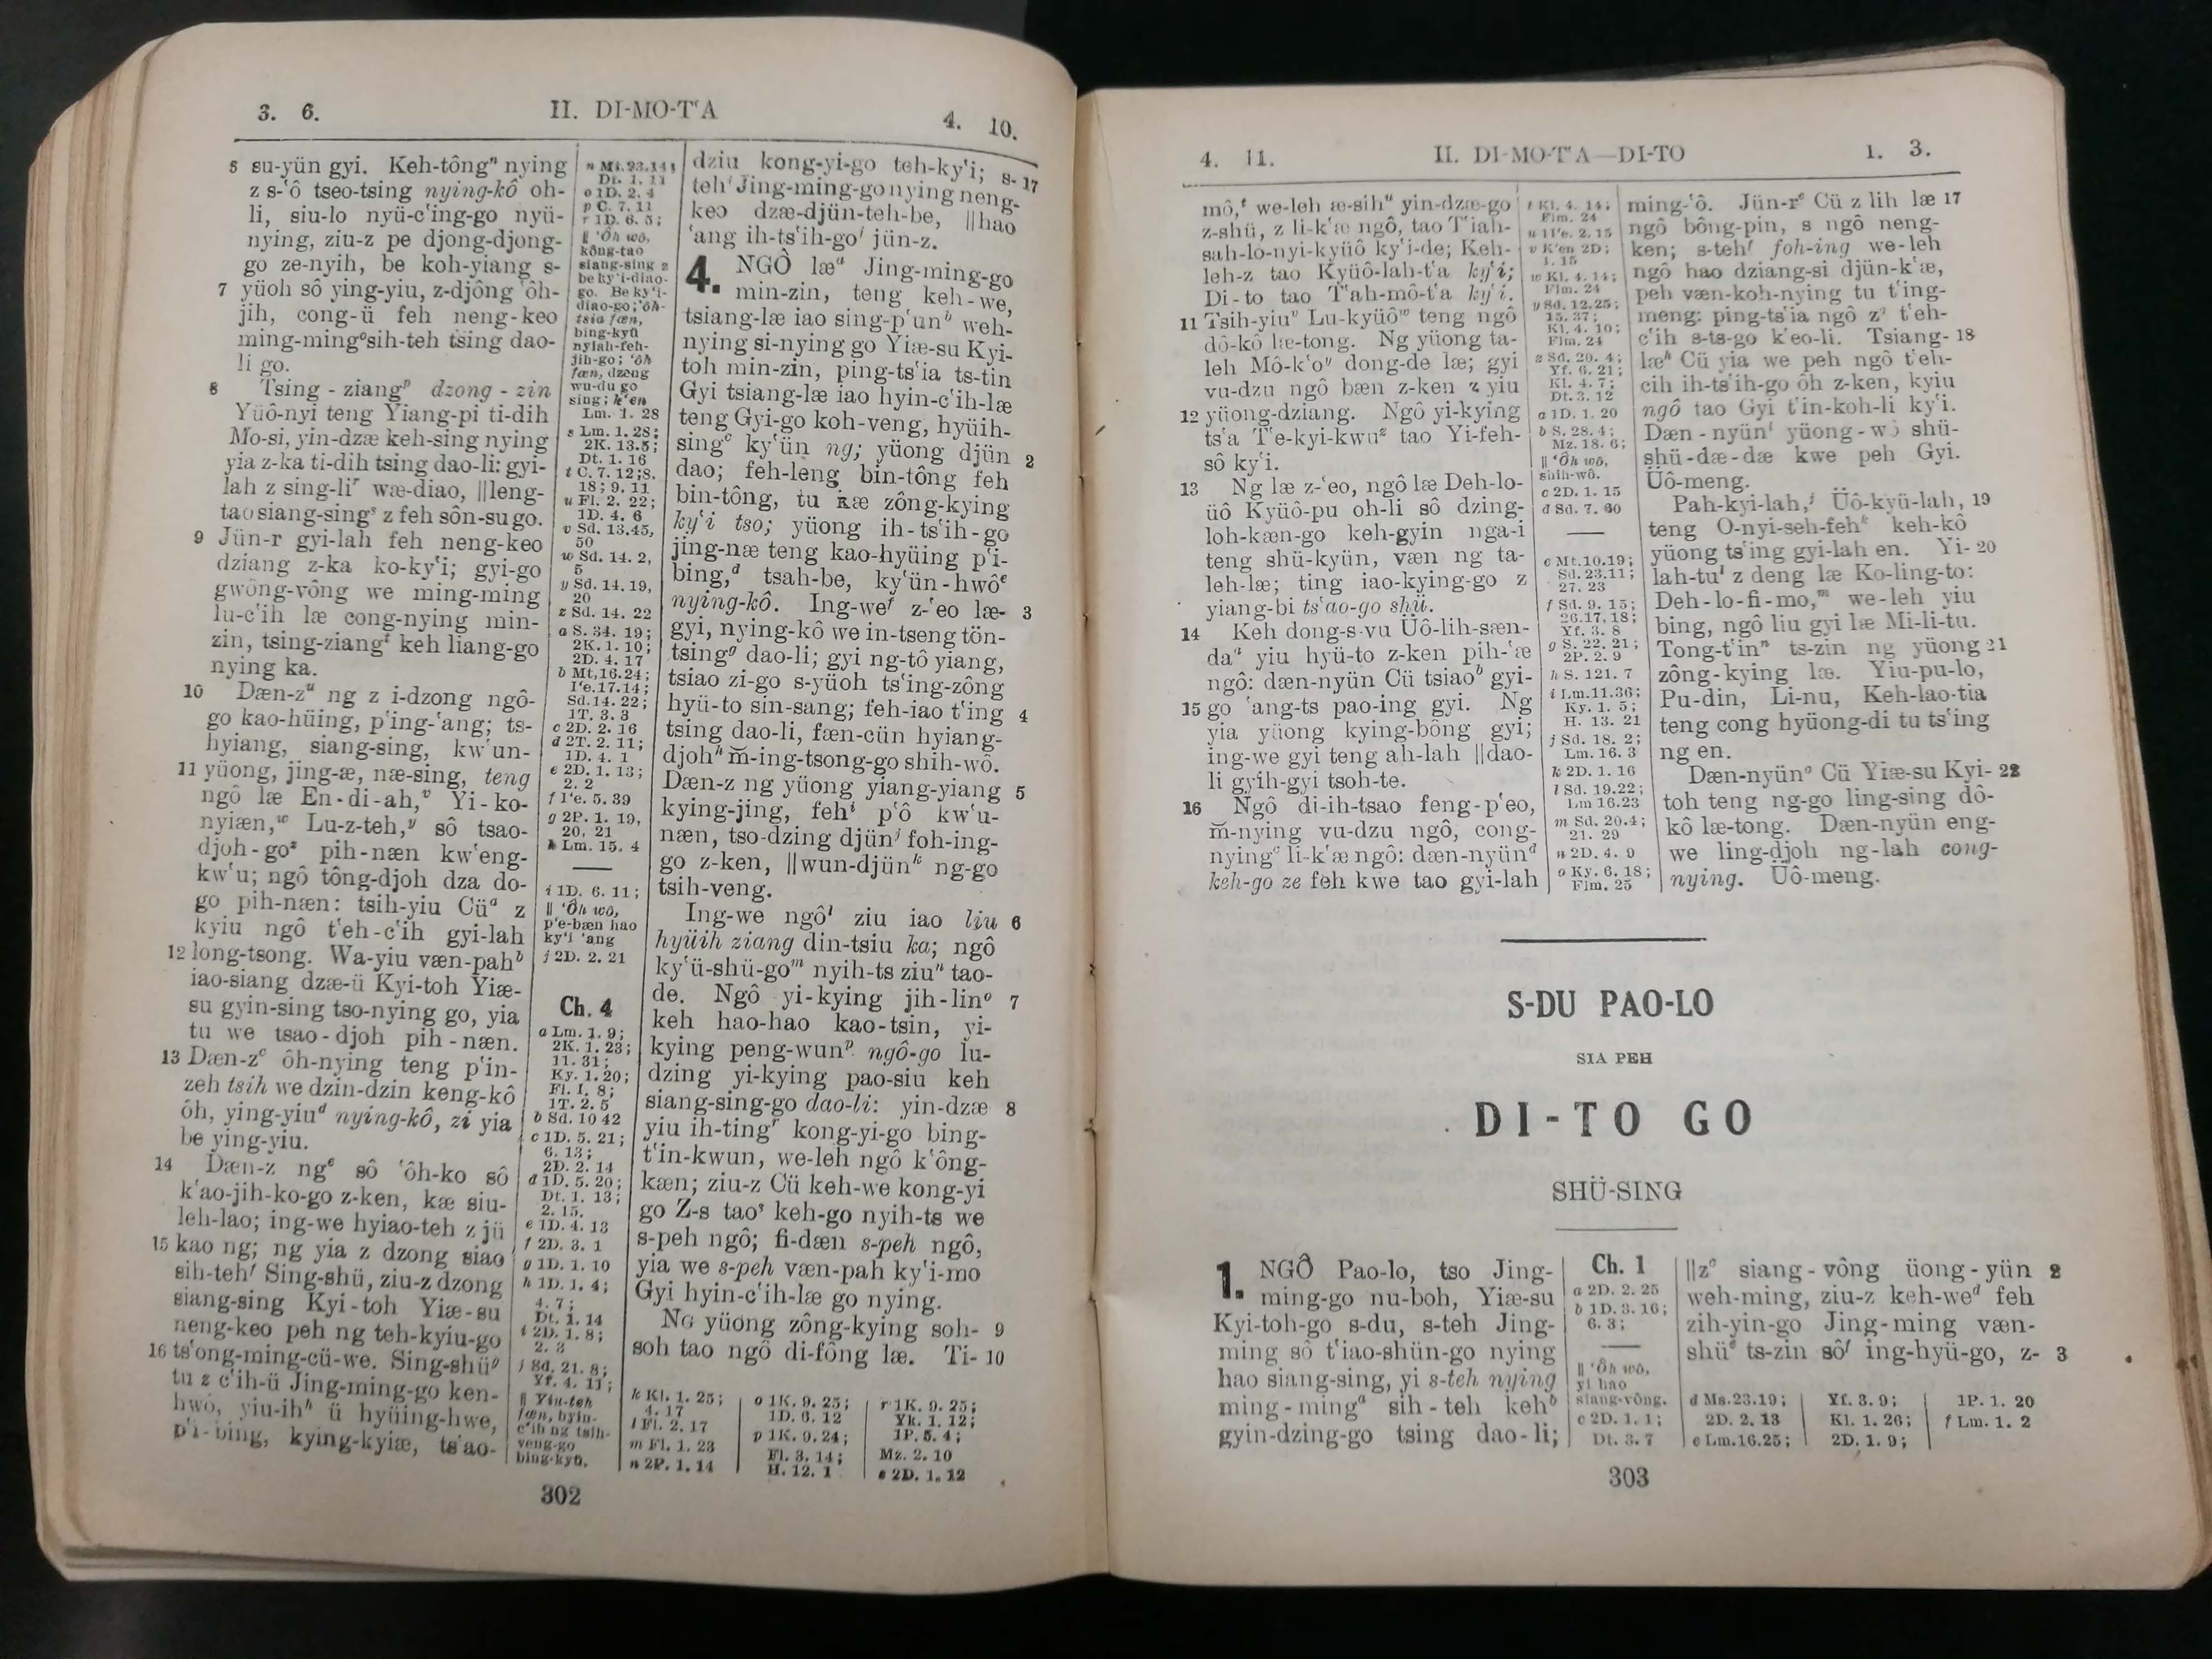 3. 6.
II. DI-MO-TʻA
4. 10.
su-yün gyi. Keh-tôngⁿ nying
6 z s-ʻô tseo-tsing nying-kô oh-
li, siu-lo nyü-cʻing-go nyü-
nying, ziu-z pe djong-djong-
go ze-nyih, be koh-yiang s-
7 yüoh sô ying-yiu, z-djông ʻôh-
jih, cong-ü feh neng-keo
ming-mingᵒ sih-teh tsing dao-
li go.
8 Tsing-ziangᵖ dzong-zin
Yüô-nyi teng Yiang-pi ti-dih
Mo-si, yin-dzæ keh-sing nying
yia z-ka ti-dih tsing dao-li: gyi-
lah z sing-liʳ wæ-diao, ||leng-
tao siang-singˢ z feh sôn-su go.
9 Jün-r gyi-lah feh neng-keo
dziang z-ka ko-kyʻi; gyi-go
gwông-vông we ming-ming
lu-cʻih læ cong-nying min-
zin, tsing-ziangᵗ keh liang-go
nying ka.
10 Dæn-zᵘ ng z i-dzong ngô-
go kao-hüing, pʻing-ʻang; ts-
hyiang, siang-sing, kwʻun-
11 yüong, jing-æ, næ-sing, teng
ngô læ En-di-ah,ᵛ Yi-ko-
nyiæn,ʷ Lu-z-teh,ʸ sô tsao-
djoh-goᶻ pih-næn kwʻeng-
kwʻu; ngô tông-djoh dza do-
go pih-næn: tsih-yiu Cüᵃ z
kyiu ngô tʻeh-cʻih gyi-lah
12 long-tsong. Wa-yiu væn-pahᵇ
iao-siang dzæ-ü Kyi-toh Yiæ-
su gyin-sing tso-nying go, yia
tu we tsao-djoh pih-næn.
13 Dæn-zᶜ ôh-nying teng pʻin-
zeh tsih we dzin-dzin keng-kô
ôh, ying-yiuᵈ nying-kô, zi yia
be ying-yiu.
14 Dæn-z ngᵉ sô ʻôh-ko sô
kʻao-jih-ko-go z-ken, kæ siu-
leh-lao; ing-we hyiao-teh z jü
15 kao ng; ng yia z dzong siao
sih-tehᶠ Sing-shü, ziu-z dzong
siang-sing Kyi-toh Yiæ-su
neng-keo peh ng teh-kyiu-go
16 tsʻong-ming-cü-we. Sing-shüᵍ
tu z cʻih-ü Jing-ming-go ken-
hwô, yiu-ihʰ ü hyüing-hwe,
pʻi-bing, kying-kyiæ, tsʻao-
n Mt.23.14;
Dt. 1. 11
o 1D. 2. 4
p C. 7. 11
r 1D. 6. 5;
|| ʻÔh wô,
kông-tao
siang-sing z
be kyʻi-diao-
go. Be kyʻi-
diao-go; ʻôh-
tsia fæn,
bing-kyü
nyiah-feh-
jih-go; ʻôh
fæn, dzeng
wu-du go
sing; kʻen
Lm. 1. 28
s Lm. 1. 28;
2K. 13.5;
Dt. 1. 16
t C. 7. 12; 8.
18; 9. 11
u Fl. 2. 22;
1D. 4. 6
v Sd. 13.45,
50
w Sd. 14. 2,
5
y Sd. 14. 19,
20
z Sd. 14. 22
a S. 34. 19;
2K. 1. 10;
2D. 4. 17
b Mt,16.24;
Iʻe.17.14;
Sd.14. 22;
1T. 3. 3
c 2D. 2. 16
d 2T. 2. 11;
1D. 4. 1
e 2D. 1. 13;
2. 2
f Iʻe. 5. 39
g 2P. 1. 19,
20, 21
h Lm. 15. 4
i 1D. 6. 11;
|| ʻÔh wô,
pʻe-bæn hao
kyʻi ʻang
j 2D. 2. 21
Ch. 4
a Lm. 1. 9;
2K. 1. 23;
11. 31;
Ky. 1. 20;
Fl. 1. 8;
1T. 2. 5
b Sd. 10 42
c 1D. 5. 21;
6. 13;
2D. 2. 14
d 1D. 5. 20;
Dt. 1. 13;
2. 15.
e 1D. 4. 13
f 2D. 3. 1
g 1D. 1. 10
h 1D. 1. 4;
4. 7;
Dt. 1. 14
i 2D. 1. 8;
2. 3
j Sd. 21. 8;
Yf. 4. 11;
|| Yiu-teh
fæn, hyin-
cʻih ng tsih-
veng-go
bing-kyü.
dziu kong-yi-go teh-kyʻi; s- 17
tehⁱ Jing-ming-go nying neng-
keo dzæ-djün-teh-be, ||hao
ʻang ih-tsʻih-goʲ jün-z.
4. NGÔ læᵃ Jing-ming-go
min-zin, teng keh-we,
tsiang-læ iao sing-pʻunᵇ weh-
nying si-nying go Yiæ-su Kyi-
toh min-zin, ping-tsʻia ts-tin
Gyi tsiang-læ iao hyin-cʻih-læ
teng Gyi-go koh-veng, hyüih-
singᶜ kyʻün ng; yüong djün 2
dao; feh-leng bin-tông feh
bin-tông, tu kæ zông-kying
kyʻi tso; yüong ih-tsʻih-go
jing-næ teng kao-hyüing pʻi-
bing,ᵈ tsah-be, kyʻün-hwôᵉ
nying-kô. Ing-weᶠ z-ʻeo læ- 3
gyi, nying-kô we in-tseng tön-
tsingᵍ dao-li; gyi ng-tô yiang,
tsiao zi-go s-yüoh tsʻing-zông
hyü-to sin-sang; feh-iao tʻing 4
tsing dao-li, fæn-cün hyiang-
djohʰ m̆-ing-tsong-go shih-wô.
Dæn-z ng yüong yiang-yiang 5
kying-jing, fehⁱ pʻô kwʻu-
næn, tso-dzing djünʲ foh-ing-
go z-ken, ||wun-djünᵏ ng-go
tsih-veng.
Ing-we ngôˡ ziu iao liu 6
hyüih ziang din-tsiu ka; ngô
kyʻü-shü-goᵐ nyih-ts ziuⁿ tao-
de. Ngô yi-kying jih-linᵒ 7
keh hao-hao kao-tsin, yi-
kying peng-wunᵖ ngô-go lu-
dzing yi-kying pao-siu keh
siang-sing-go dao-li: yin-dzæ 8
yiu ih-tingʳ kong-yi-go bing-
tʻin-kwun, we-leh ngô kʻông-
kæn; ziu-z Cü keh-we kong-yi
go Z-s taoˢ keh-go nyih-ts we
s-peh ngô; fi-dæn s-peh ngô,
yia we s-peh væn-pah kyʻi-mo
Gyi hyin-cʻih-læ go nying.
NG yüong zông-kying soh- 9
soh tao ngô di-fông læ. Ti- 10
k Kl. 1. 25;
4. 17
l Fl. 2. 17
m Fl. 1. 23
n 2P. 1. 14
o 1K. 9. 25;
1D. 6. 12
p 1K. 9.24;
Fl. 3. 14;
H. 12. 1
r 1K. 9. 25;
Yk. 1. 12;
1P. 5. 4;
Mz. 2. 10
s 2D. 1. 12
302
4. 11.
II. DI-MO-TʻA—DI-TO
1. 3.
mô,ᵗ we-leh æ-sihᵘ yin-dzæ-go
z-shü, z li-kʻæ ngô, tao Tʻiah-
sah-lo-nyi-kyüô kyʻi-de; Keh-
leh-z tao Kyüô-lah-tʻa kyʻi;
Di-to tao Tʻah-mô-tʻa kyʻi.
11 Tsih-yiuᵛ Lu-kyüôʷ teng ngô
dô-kô læ-tong. Ng yüong ta-
leh Mô-kʻoʸ dong-de læ; gyi
vu-dzu ngô bæn z-ken z yiu
12 yüong-dziang. Ngô yi-kying
tsʻa Tʻe-kyi-kwuᶻ tao Yi-feh-
sô kyʻi.
13 Ng læ z-ʻeo, ngô læ Deh-lo-
üô Kyüô-pu oh-li sô dzing-
loh-kæn-go keh-gyin nga-i
teng shü-kyün, væn ng ta-
leh-læ; ting iao-kying-go z
yiang-bi tsʻao-go shü.
14 Keh dong-s-vu Üô-lih-sæn-
daᵃ yiu hyü-to z-ken pih-ʻæ
ngô: dæn-nyün Cü tsiaoᵇ gyi-
15 go ʻang-ts pao-ing gyi. Ng
yia yüong kying-bông gyi;
ing-we gyi teng ah-lah ||dao-
li gyih-gyi tsoh-te.
16 Ngô di-ih-tsao feng-pʻeo,
m̆-nying vu-dzu ngô, cong-
nyingᶜ li-kʻæ ngô: dæn-nyünᵈ
keh-go ze feh kwe tao gyi-lah
t Kl. 4. 14;
Flm. 24
u Iʻe. 2. 15
v Kʻen 2D;
1. 15
w Kl. 4. 14;
Flm. 24
y Sd. 12.25;
15. 37;
Kl. 4. 10;
Flm. 24
z Sd. 20. 4;
Yf. 6. 21;
Kl. 4. 7;
Dt. 3. 12
a 1D. 1. 20
b S. 28. 4;
Mz. 18. 6;
|| ʻÔh wô,
shih-wô.
c 2D. 1. 15
d Sd. 7. 60
e Mt.10.19;
Sd. 23.11;
27. 23
f Sd. 9. 15;
26.17, 18;
Yf. 3. 8
g S. 22. 21;
2P. 2. 9
h S. 121. 7
i Lm.11.36;
Ky. 1. 5;
H. 13. 21
j Sd. 18. 2;
Lm. 16. 3
k 2D. 1. 16
l Sd. 19.22;
Lm 16.23
m Sd. 20.4;
21. 29
n 2D. 4. 9
o Ky. 6. 18;
Flm. 25
ming-ʻô. Jün-rᵉ Cü z lih læ 17
ngô bông-pin, s ngô neng-
ken; s-tehᶠ foh-ing we-leh
ngô hao dziang-si djün-kʻæ,
peh væn-koh-nying tu tʻing-
meng: ping-tsʻia ngô zᵍ tʻeh-
cʻih s-ts-go kʻeo-li. Tsiang- 18
læʰ Cü yia we peh ngô tʻeh-
cih ih-tsʻih-go ôh z-ken, kyiu
ngô tao Gyi tʻin-koh-li kyʻi.
Dæn-nyünⁱ yüong-wô shü-
shü-dæ-dæ kwe peh Gyi.
Üô-meng.
Pah-kyi-lah,ʲ Üô-kyü-lah, 19
teng O-nyi-seh-fehᵏ keh-kô
yüong tsʻing gyi-lah en. Yi- 20
lah-tuˡ z deng læ Ko-ling-to:
Deh-lo-fi-mo,ᵐ we-leh yiu
bing, ngô liu gyi læ Mi-li-tu.
Tong-tʻinⁿ ts-zin ng yüong 21
zông-kying læ. Yiu-pu-lo,
Pu-din, Li-nu, Keh-lao-tia
teng cong hyüong-di tu tsʻing
ng en.
Dæn-nyünᵒ Cü Yiæ-su Kyi- 22
toh teng ng-go ling-sing dô-
kô læ-tong. Dæn-nyün eng-
we ling-djoh ng-lah cong-
nying. Üô-meng.
S-DU PAO-LO
SIA PEH
DI-TO GO
SHÜ-SING
1. NGÔ Pao-lo, tso Jing-
ming-go nu-boh, Yiæ-su
Kyi-toh-go s-du, s-teh Jing-
ming sô tʻiao-shün-go nying
hao siang-sing, yi s-teh nying
ming-mingᵃ sih-teh kehᵇ
gyin-dzing-go tsing dao-li;
Ch. 1
a 2D. 2. 25
b 1D. 3. 16;
6. 3;
|| ʻÔh wô,
yi hao
siang-vông.
c 2D. 1. 1;
Dt. 3. 7
||zᶜ siang-vông üong-yün 2
weh-ming, ziu-z keh-weᵈ feh
zih-yin-go Jing-ming væn-
shüᵉ ts-zin sôᶠ ing-hyü-go, z- 3
d Ms.23.19;
2D. 2. 13
e Lm.16.25;
Yf. 3. 9;
Kl. 1. 26;
2D. 1. 9;
1P. 1. 20
f Lm. 1. 2
303